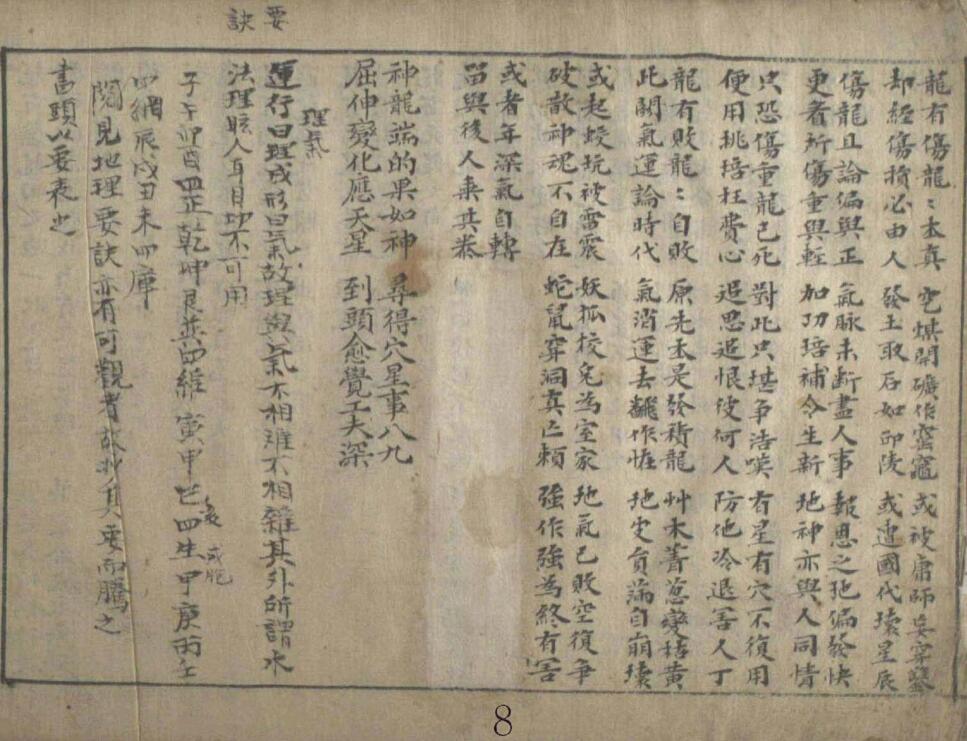 要訣
龍有傷龍〻本真 空煤開礦作窰竈 或被庸師妄穿鑿
却經傷損必由人 發土取石如邱陵 或遭國代壞星辰
傷龍且論偏與正 氣脉未斷盡人事 報恩之地偏發快
更者所傷重與輕 加功培補令生新 地神亦與人同情
只恐傷重龍已死 對此只堪爭浩嘆 有星有穴不復用
便用挑培枉費心 追思追恨彼何人 防他冷退害人丁
龍有敗龍〻自敗 原先本是發積龍 艸木菁葱變枯黄
此關氣運論時代 氣消運去飜作怪 地史負崩自崩壞
或起蛟玩被雷震 妖狐狡兔為室家 地氣已敗空復爭
破散神魂不自在 蛇鼠穿洞真亡賴 強作強為終有害
或者年深氣自轉
留與後人乘其泰
神龍端的果如神 尋得穴星事八九
屈伸變化應天星 到頭愈覺工夫深
理氣
運行曰理成形曰氣故理與氣不相離不相雜其外所謂水
法理眩人耳目切不可用
子午卯酉四正乾坤艮巽四維寅申巳亥四生甲庚丙壬
或胞
四綱辰戌丑未四庫
閱見地理要訣亦有可觀者故抄其要而騰之
書頭以要表之
8